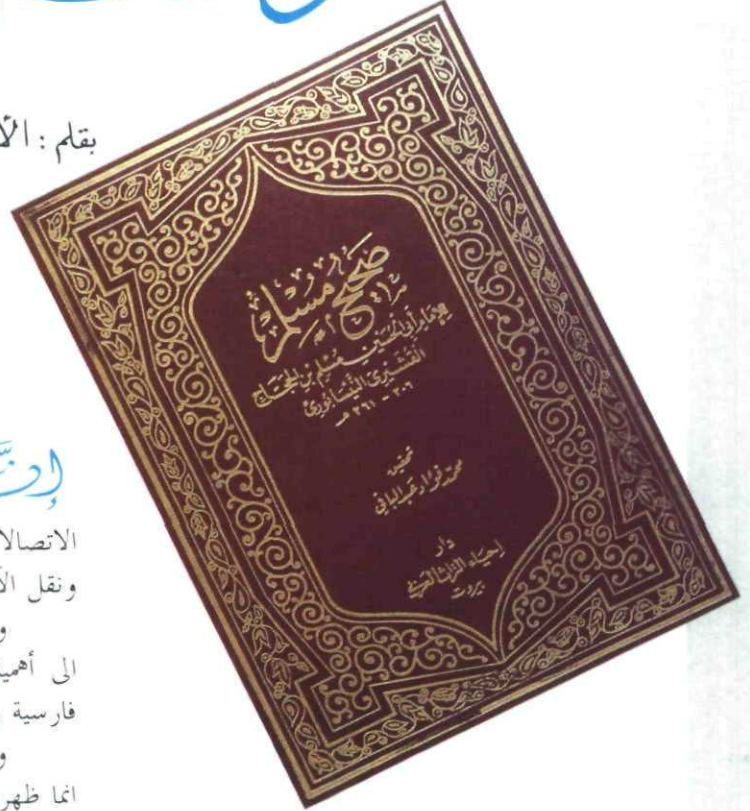 بقلم : الأ
صحيح مسلم
للإمام أبي الحسين مسلم بن الحجاج
القشيري النيسابوري
٢٠٦ - ٢٦١ هـ
تحقيق
محمد فؤاد عبد الباقي
دار
إحياء التراث العربي
بيروت
إنَّ
الاتصالا
ونقل الأ
و
الى أهمي
فارسية
و
انما ظهر